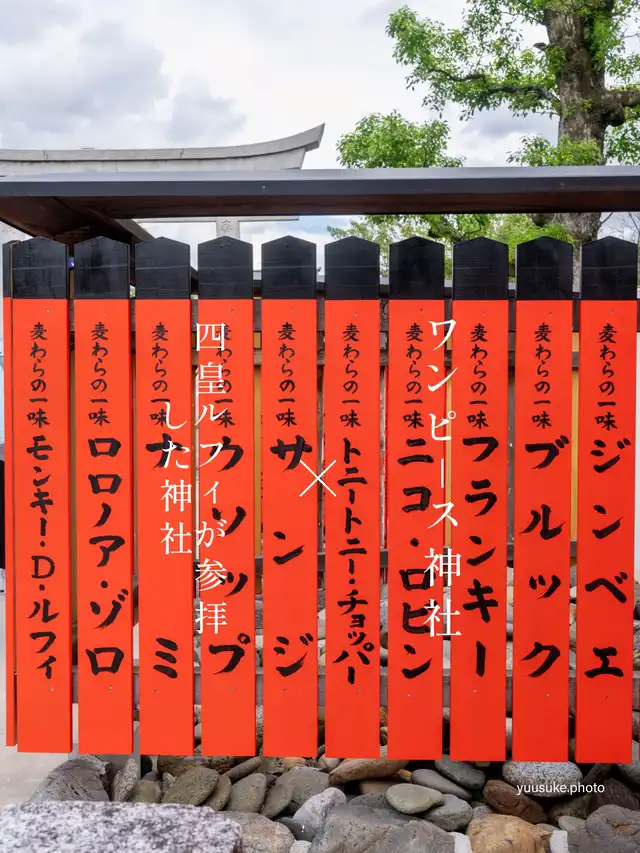 ワンピース神社
×
四皇ルフィが参拝
した神社
麦わらの一味 ジンベエ
麦わらの一味 ブルック
麦わらの一味 フランキー
麦わらの一味 ニコ・ロビン
麦わらの一味 トニートニー・チョッパー
麦わらの一味 サンジ
麦わらの一味 ウソップ
麦わらの一味 ナミ
麦わらの一味 ロロノア・ゾロ
麦わらの一味 モンキー・D・ルフィ
yuusuke.photo